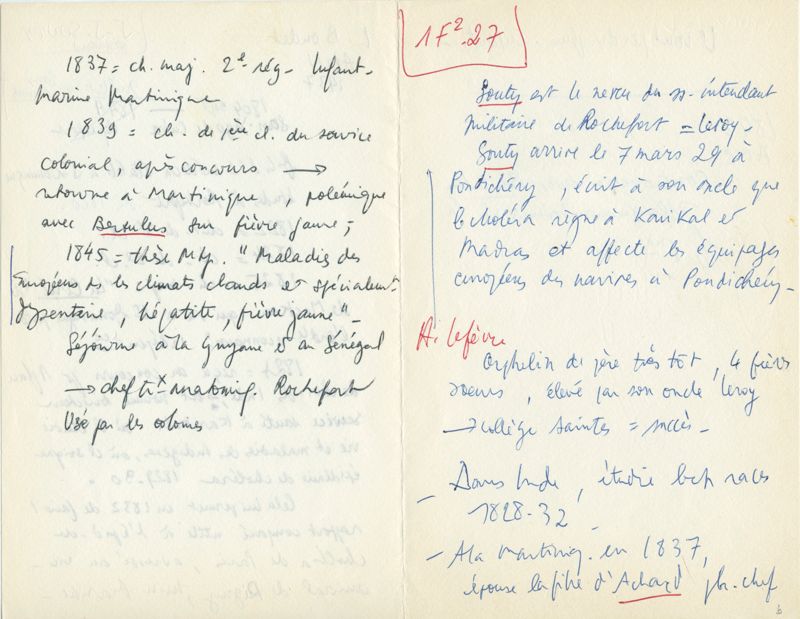 1837 = ch. maj. 2e rég - Infant-
marine Martinique
1839 = ch. de 1ère cl. du service
colonial, après concours →
retourne à Martinique, polémique
avec Bertulus sur fièvre jaune ;
1845 = thèse Mtp. " Maladies des
Européens ds les climats chauds et spécialemt
dysenterie, hépatite, fièvre jaune " -
Séjourne à la Guyane et au Sénégal
→ chef trx anatomiq. Rochefort
Usé par les colonies
1F2-27
Souty est le neveu du ss-intendant
militaire de Rochefort = Leroy -
Souty arrive le 7 mars 29 à
Pondichéry, écrit à son oncle que
le choléra règne à Karikal et
Madras et affecte les équipages
européens des navires à Pondichéry -
A. Lefèvre
Orphelin de père très tôt, 4 frères
soeurs, élevé par son oncle Leroy
→ collège Saintes = succès -
- Dans Inde, étudie bcp races
1828-32
- A la Martiniq. en 1837,
épouse la fille d'Achard ph. chef